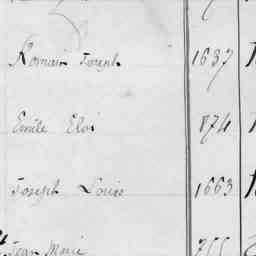 Romain Joseph 1637
Emile Eloi 874
Joseph Louis 1663
Jean Marie